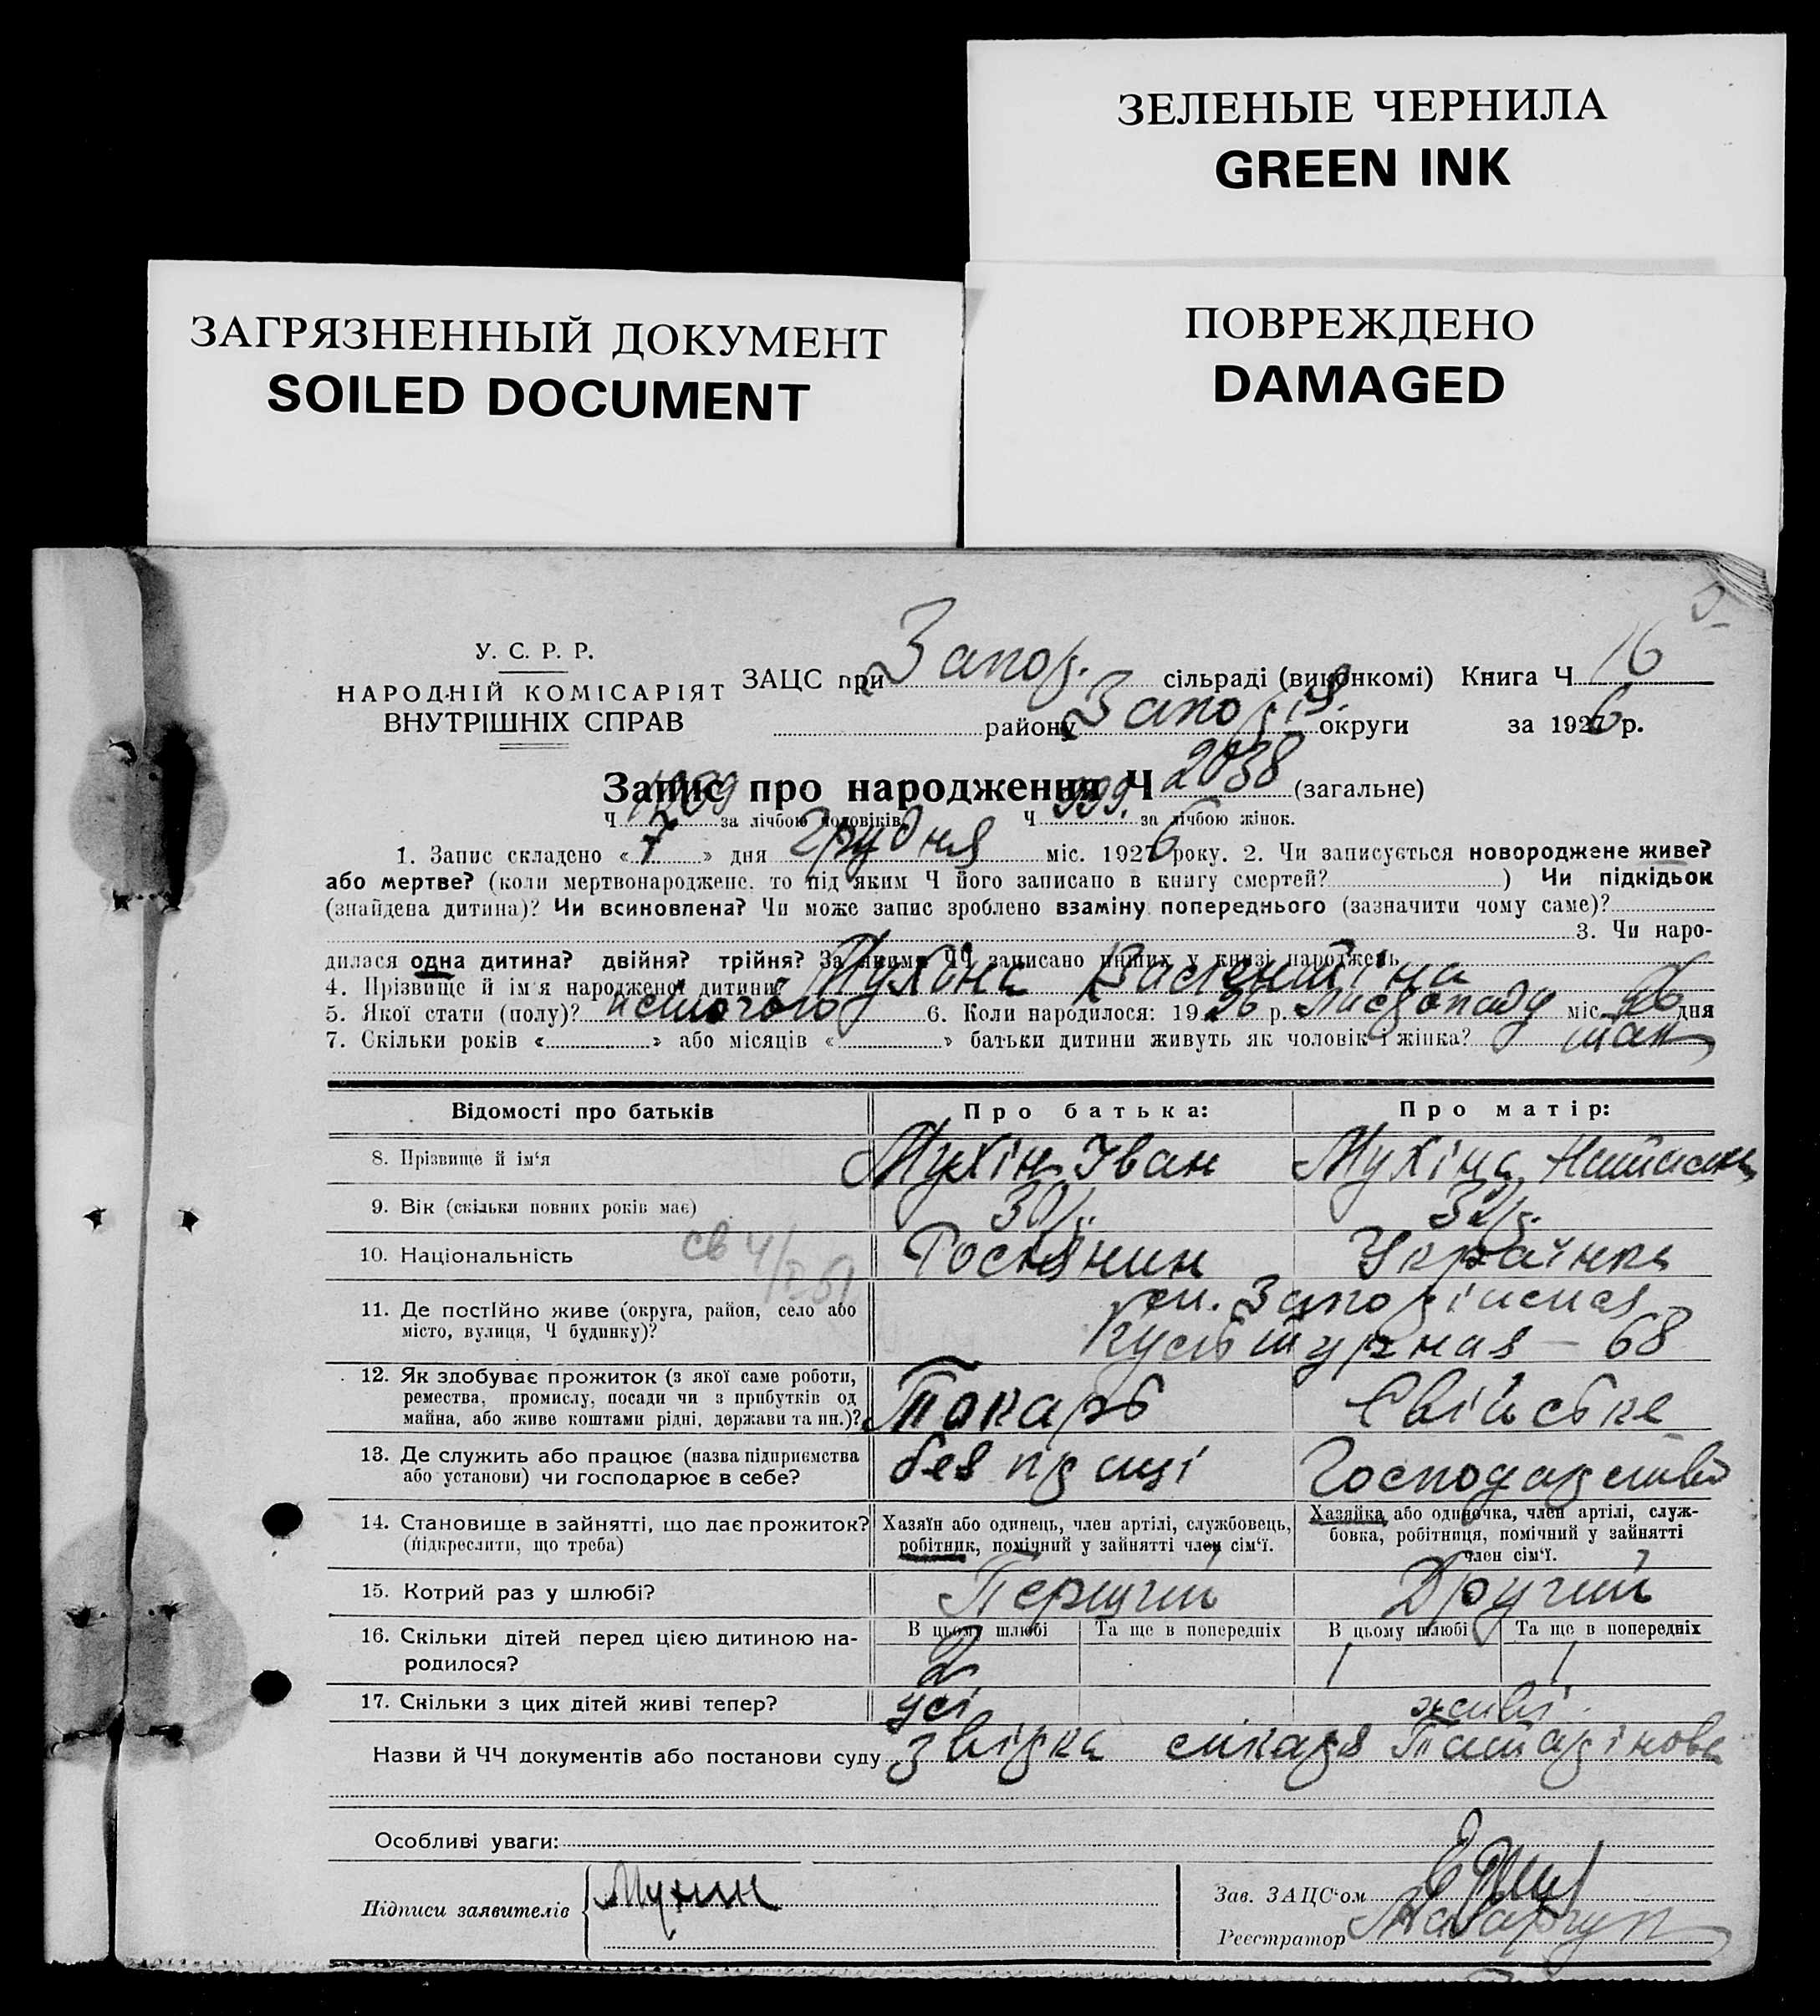 ЗЕЛЕНЫЕ ЧЕРНИЛА
GREEN INK
ЗАГРЯЗНЕННЫЙ ДОКУМЕНТ
SOILED DOCUMENT
ПОВРЕЖДЕНО
DAMAGED
У. С. Р. Р.
НАРОДНІЙ КОМІСАРІЯТ
ВНУТРІШНІХ СПРАВ
ЗАЦС при Запор. сільраді (виконкомі) Книга Ч 16
району Запоріз. округи за 1926 р.
Запис про народження Ч 2038 (загальне)
Ч за лічбою чоловіків Ч 999. за лічбою жінок.
1. Запис складено « 7 » дня Грудня міс. 1926 року. 2. Чи записується новороджене живе?
або мертве? (коли мертвонароджене, то під яким Ч його записано в книгу смертей? ) Чи підкідьок
(знайдена дитина)? Чи всиновлена? Чи може запис зроблено взаміну попереднього (зазначити чому саме)?
3. Чи наро-
дилася одна дитина? двійня? трійня? За якими ЧЧ записано инших у книзі народжень
4. Прізвище й ім'я народженої дитини? Мухіна Валентіна
5. Якої стати (полу)? жіночого 6. Коли народилося: 1926 р. Листопаду міс. 26 дня
7. Скільки років « » або місяців « » батьки дитини живуть як чоловік і жінка? так
Відомості про батьків Про батька: Про матір:
8. Прізвище й ім'я Мухін Іван Мухіна Наталка
9. Вік (скільки повних років має) 30 р. 32 р.
10. Національність Росіянин Українка
11. Де постійно живе (округа, район, село або
місто, вулиця, Ч будинку)?
ст. Запоріжжя
Культурная — 68
12. Як здобуває прожиток (з якої саме роботи,
ремества, промислу, посади чи з прибутків од
майна, або живе коштами рідні, держави та ин.)?
Токарь Свійське
13. Де служить або працює (назва підприємства
або установи) чи господарює в себе?
без праці Господарство
14. Становище в зайнятті, що дає прожиток?
(підкреслити, що треба)
Хазяїн або одинець, член артілі, службовець,
робітник, помічний у зайнятті член сім'ї.
Хазяйка або одиночка, член артілі, служ-
бовка, робітниця, помічний у зайнятті
член сім'ї.
15. Котрий раз у шлюбі? Перший Другий
16. Скільки дітей перед цією дитиною на-
родилося?
В цьому шлюбі Та ще в попередніх В цьому шлюбі Та ще в попередніх
2 1 1
17. Скільки з цих дітей живі тепер? усі живі.
Назви й ЧЧ документів або постанови суду звірка лікаря Татарінова
Особливі уваги:
Підписи заявителів Мухин
Зав. ЗАЦС'ом
Реєстратор